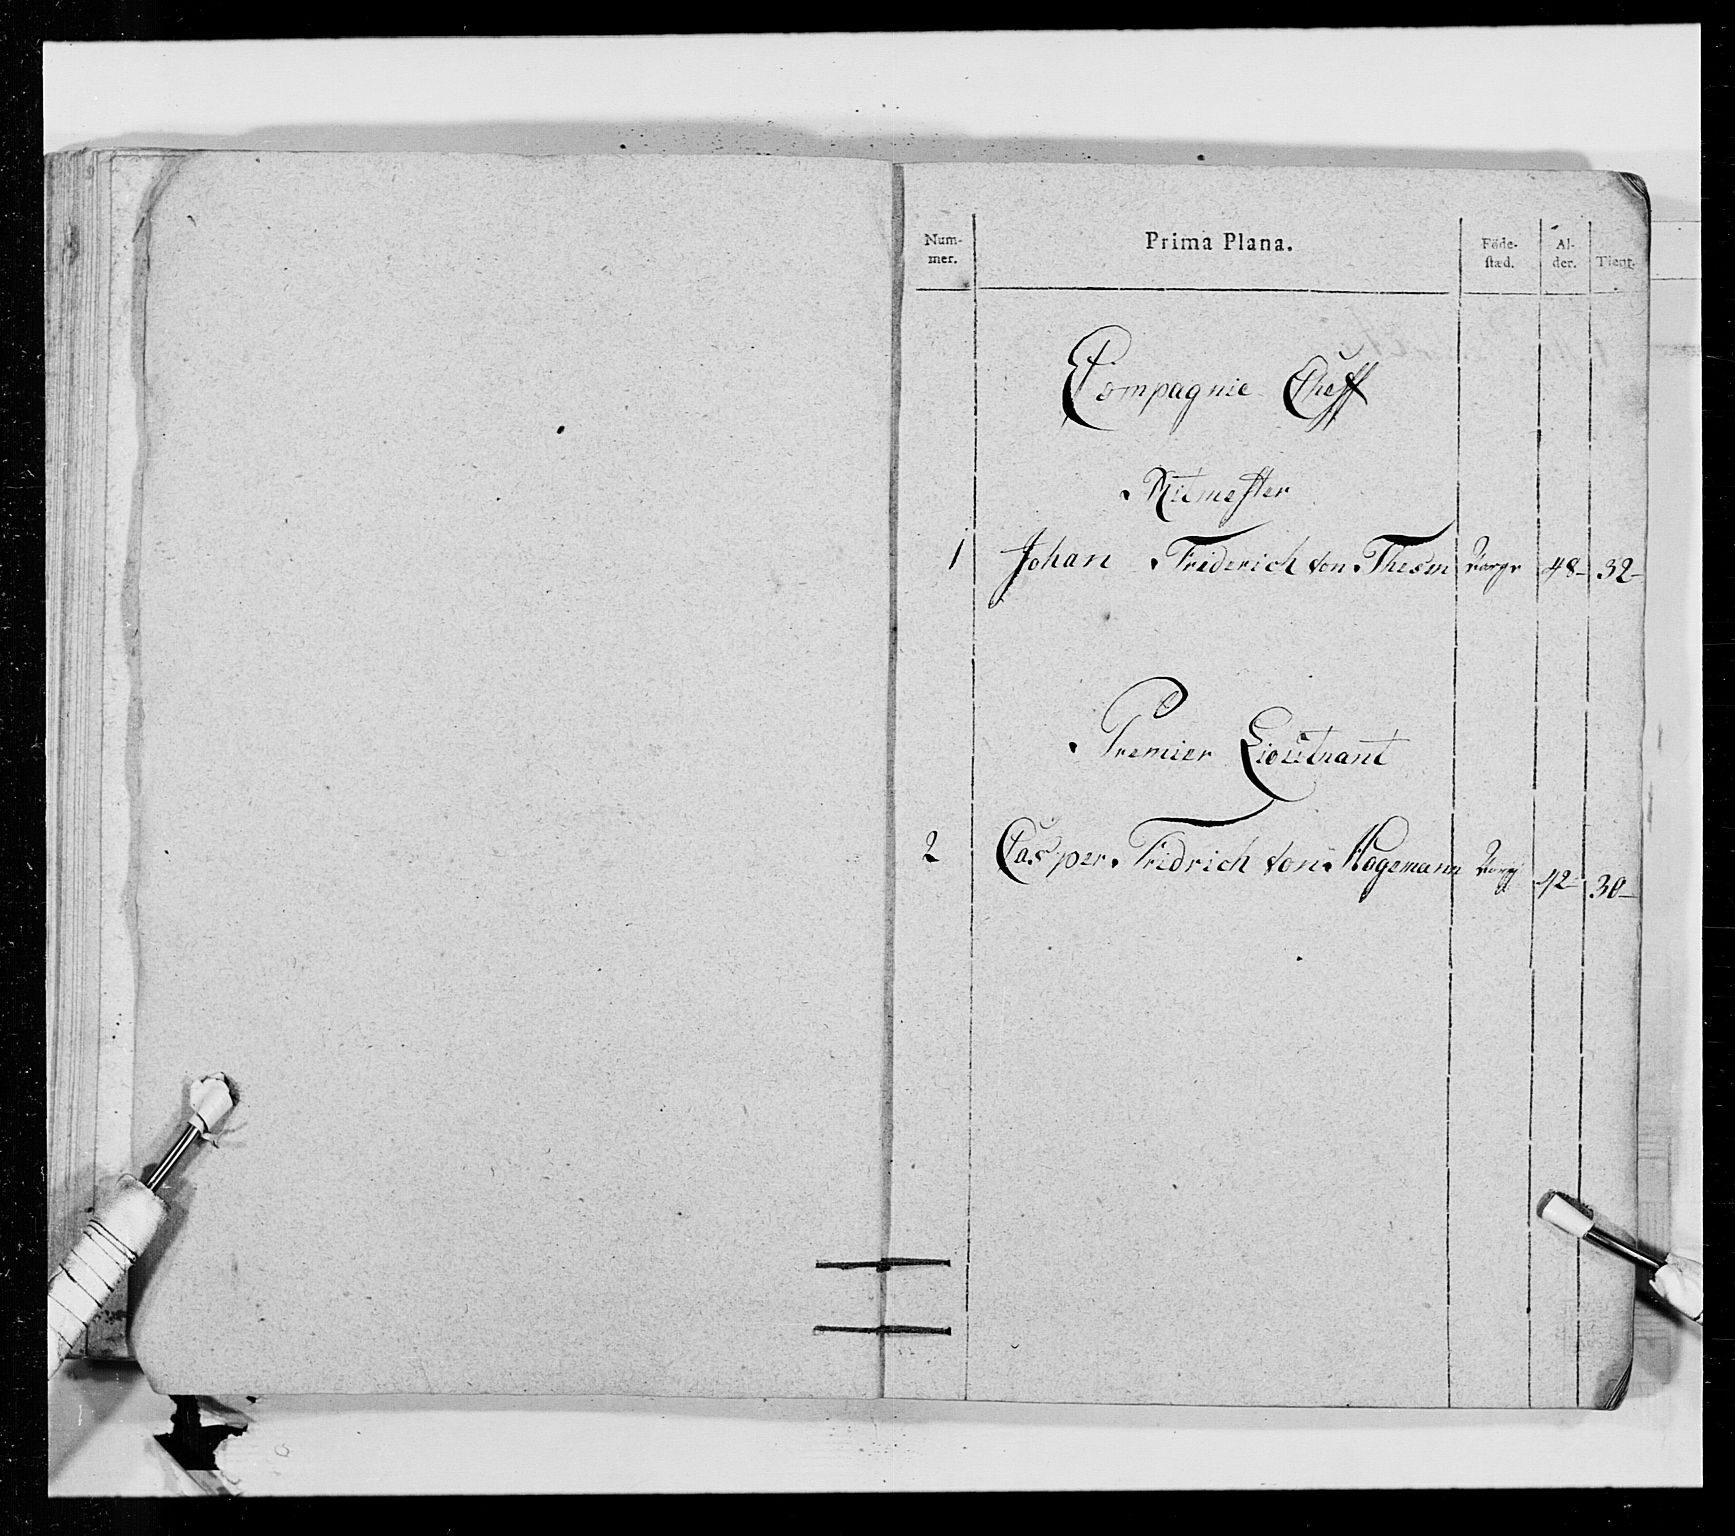 Num-
mer.
Prima Plana.
Föde-
stæd.
Al-
der.
Tient.
Compagnie Cheff
Ritmester
1 Johan Friderich von Thesm Norge 48- 32-
Premier Lieutnant
2 Casper Fridrich von Hagemann Norg 42- 30-